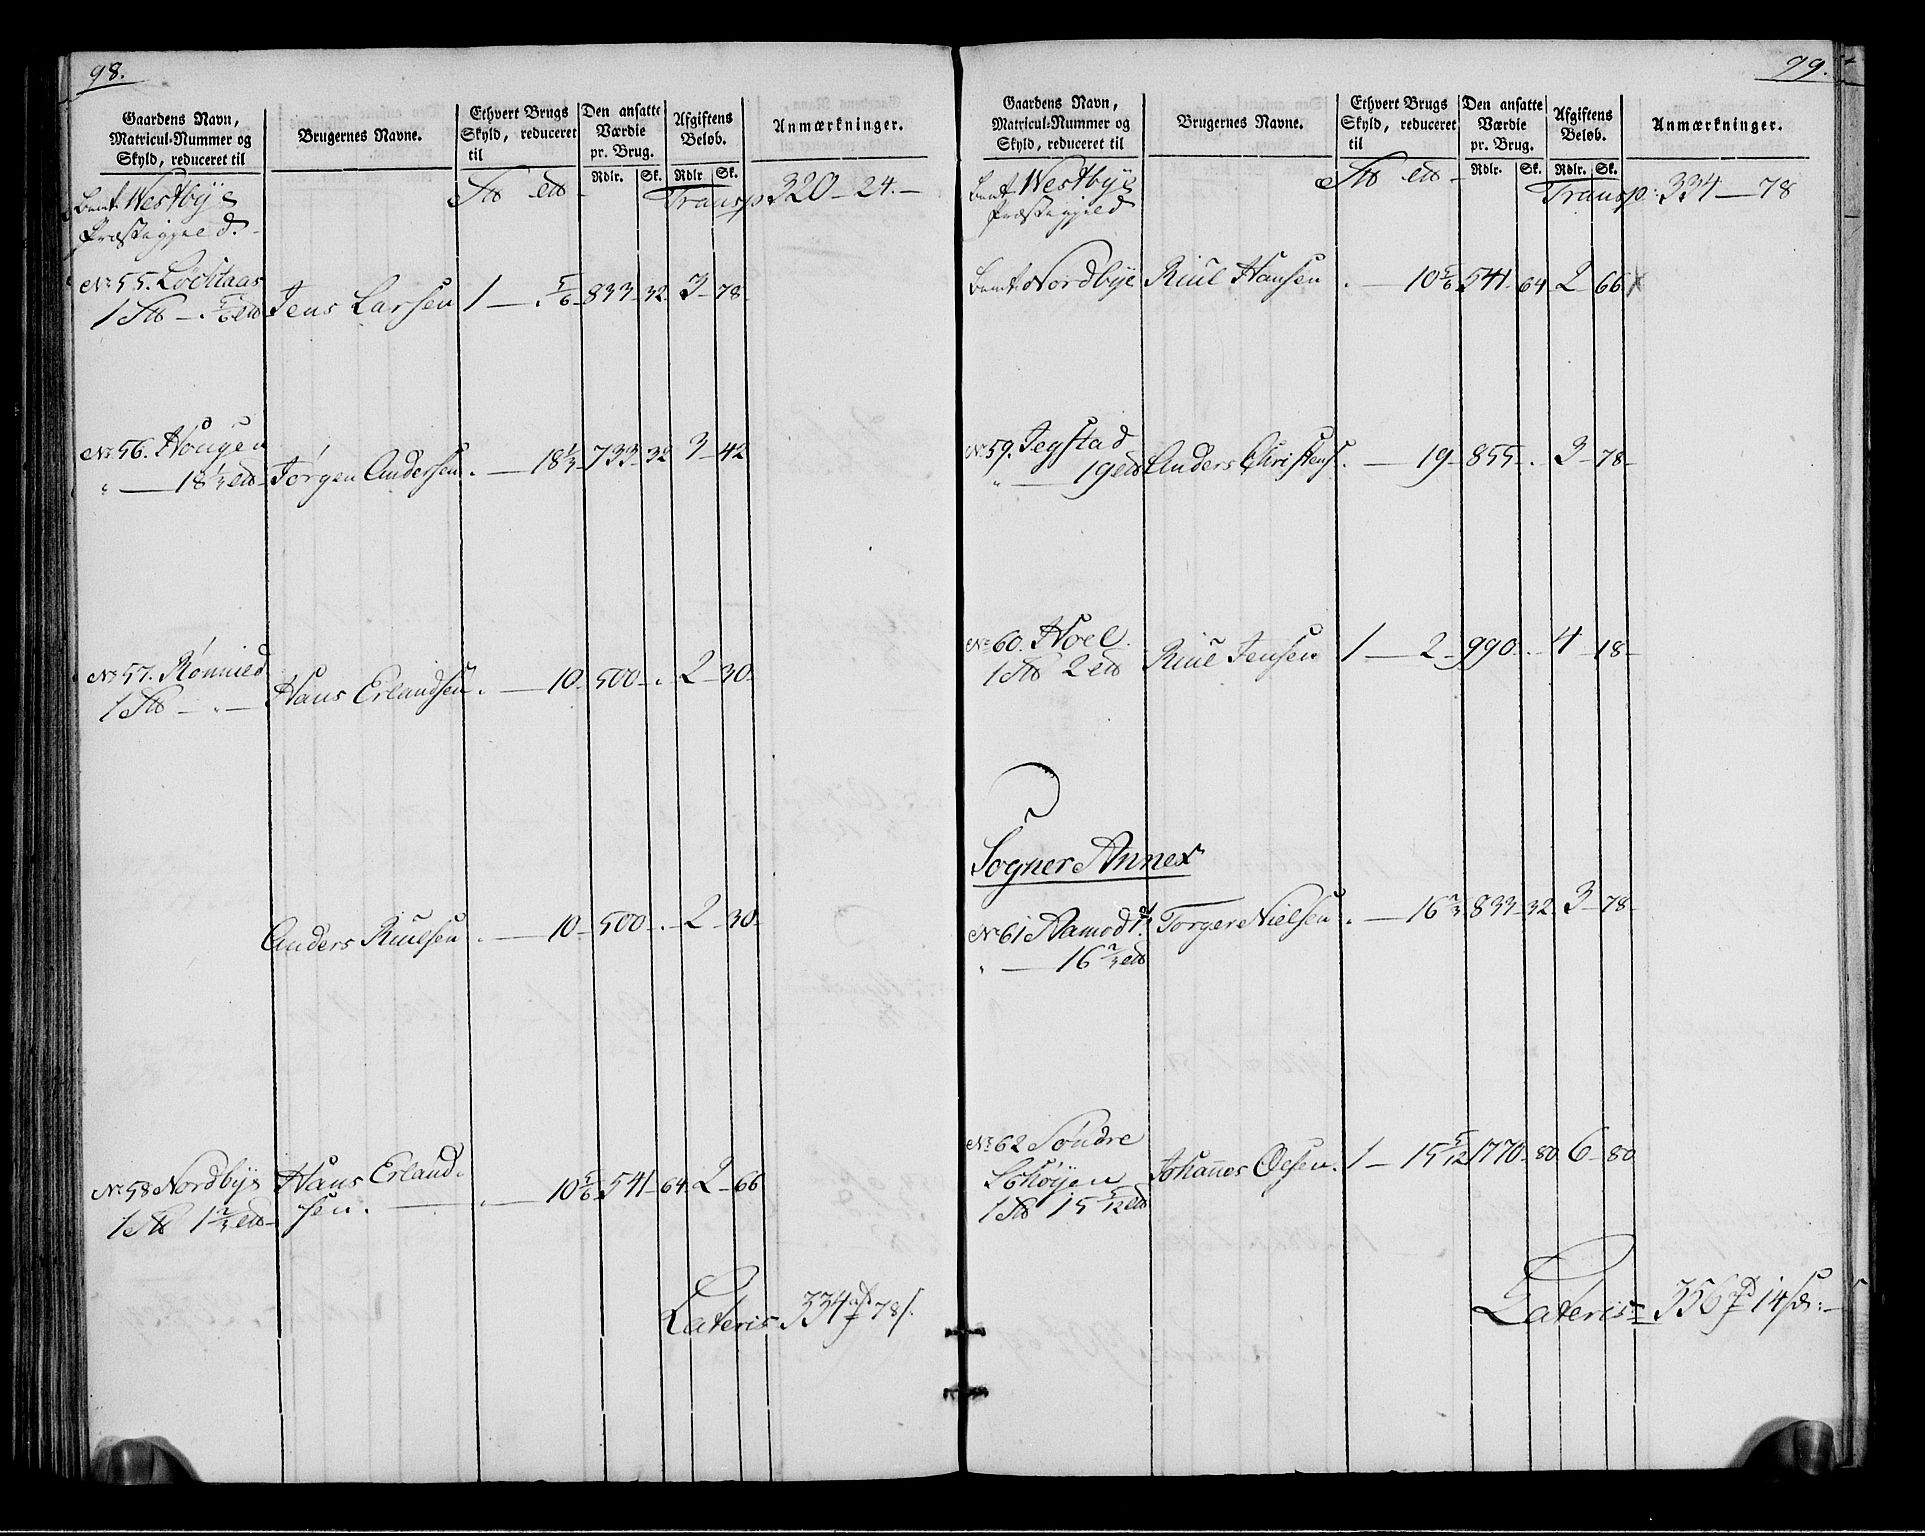 98.
Gaardens Navn, Matricul-Nummer og Skyld, reduceret til
Brugernes Navne.
Ethvert Brugs Skyld, reduceret til
Den ansatte Værdie pr. Brug.
Rdlr. Sk.
Afgiftens Beløb.
Rdlr Sk.
Anmærkninger.
Bemt Westbye
Præstegjeld.
Transp. 320 - 24. -
No 55.
Jens Larsen 1 - . 5/6 833 - 32 3 - 78 -
No 56. Hougen
" - 18 1/3 Jørgen Andersen . - 18 1/3 733 - 32 3 - 42
No 57.
Hans Erlandsen . - 10 - 500 - . 2 - 30
Anders Ruulsen . - 10 - 500 - . 2 - 30 -
No 58 Nordbye Hans Erland-
1 1 2/3 sen. . - 10 5/6 541 - 64 2 - 66
Lateris 334 78
99.
Gaardens Navn, Matricul-Nummer og Skyld, reduceret til
Brugernes Navne.
Ethvert Brugs Skyld, reduceret til
Den ansatte Værdie pr. Brug.
Rdlr. Sk.
Afgiftens Beløb.
Rdlr. Sk.
Anmærkninger.
Bemt Westbye
Præstegjeld
Transp: 334 - 78
Bemt Nordbye Ruul Hansen . - 10 5/6 541 - 64 2 - 66
No 59. Jegstad
" - 19 Anders Christens. . - 19 - 855 - . 3 - 78 -
No 60. Hoel
1 2 Ruul Jensen 1 - 2 - 990 - . 4 - 18 -
Sogner Annex
No 61 Aamodt Torger Nielsen . - 16 2/3 833 - 32 3 - 78 -
" - 16 2/3
No 62 Søndre
Schøyen Johannes Olsen. 1 - 15 5/12 1770 - 80 6 - 80
1 15 5/12
Lateris 356 14